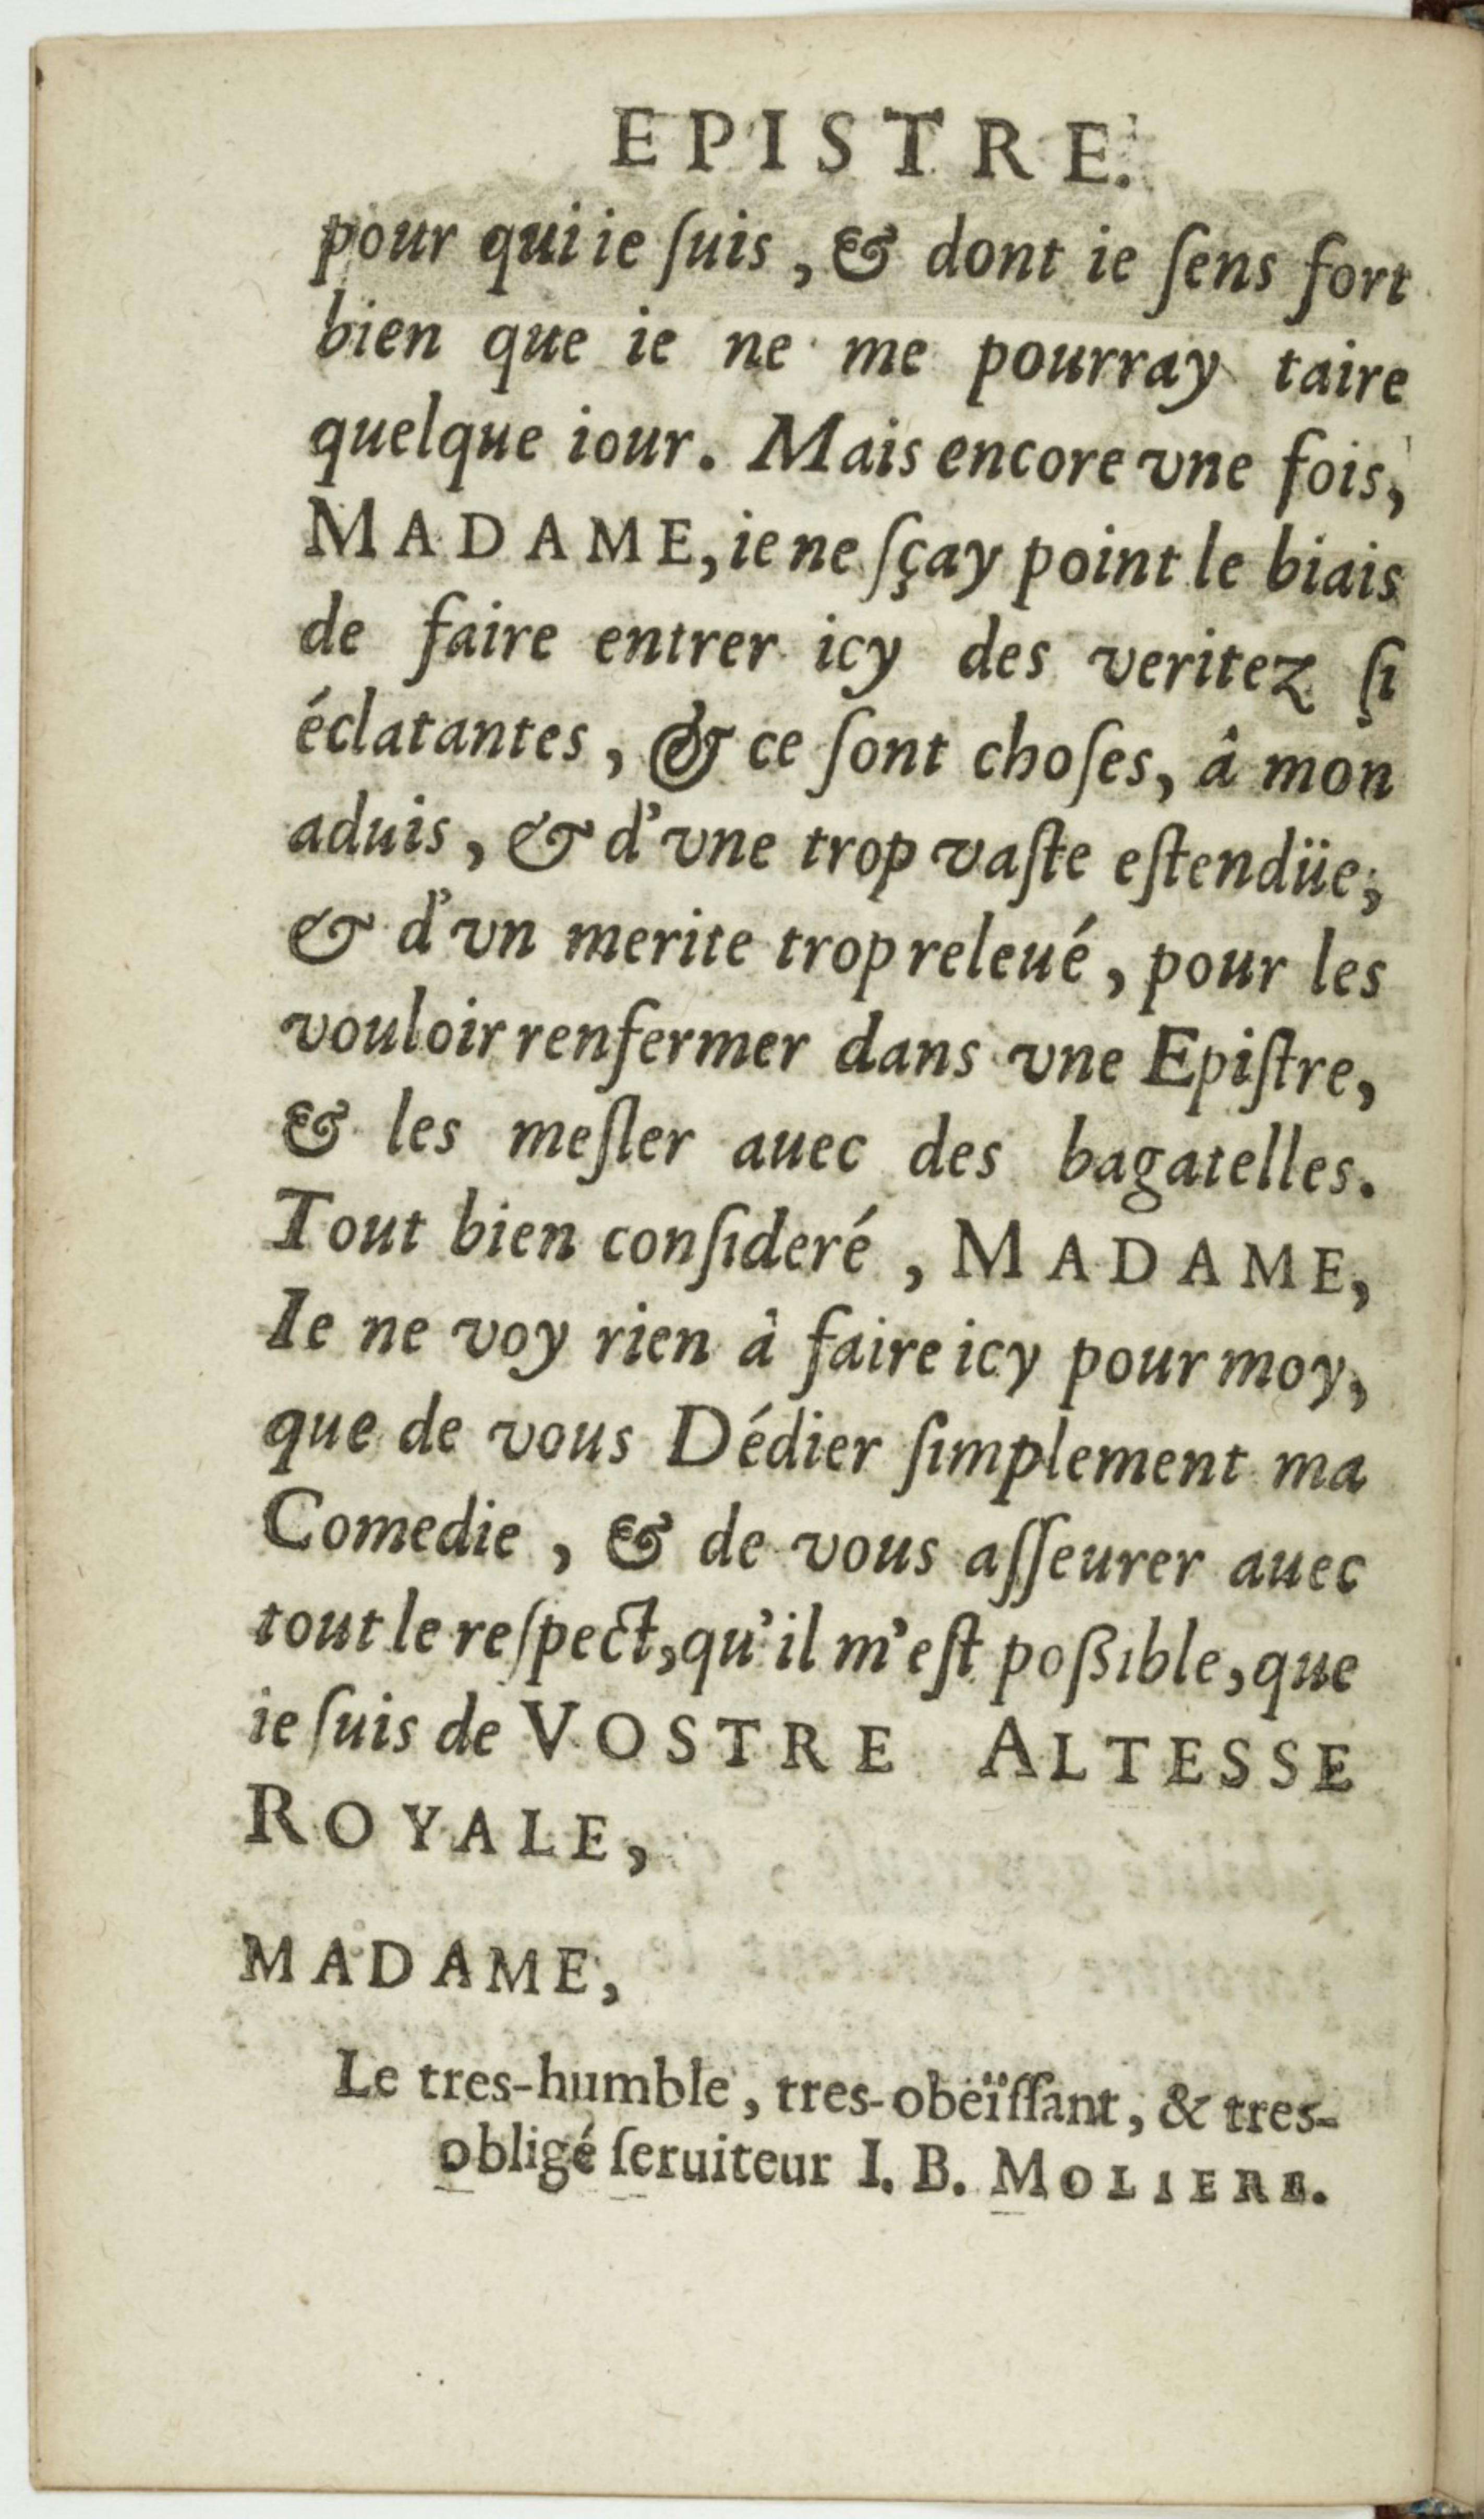 EPISTRE.
pour qui ie ſuis, & dont ie ſens fort
bien que ie ne me pourray taire
quelque iour. Mais encore vne fois,
MADAME, ie ne ſçay point le biais
de faire entrer icy des veritez ſi
éclatantes, & ce ſont choſes, à mon
aduis, & d'vne trop vaſte eſtendüe,
& d'vn merite trop releué, pour les
vouloir renfermer dans vne Epiſtre,
& les meſler auec des bagatelles.
Tout bien conſideré, MADAME,
Ie ne voy rien à faire icy pour moy,
que de vous Dédier ſimplement ma
Comedie, & de vous aſſeurer auec
tout le reſpect, qu'il m'eſt poßible, que
ie ſuis de VOSTRE ALTESSE
ROYALE,
MADAME,
Le tres-humble, tres-obeïſſant, & tres-
obligé ſeruiteur I. B. MOLIERE.